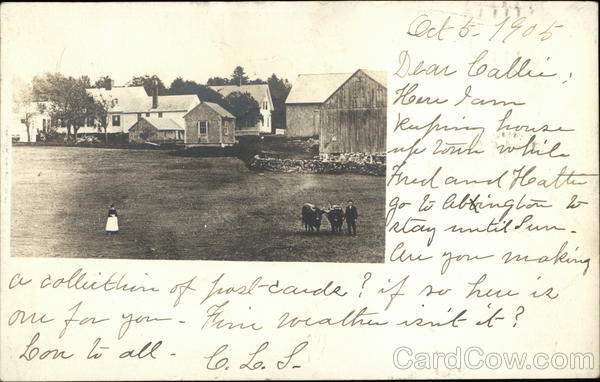 Oct 5 - 1905
Dear Callie;
Here I am
keeping house
up town while
Fred and Hattie
go to Abington to
stay until Sun-
Are you making
a collection of post-cards? if so here is
one for you - Fine weather isn't it?
Lov to all - C. L. S.
CardCow.com